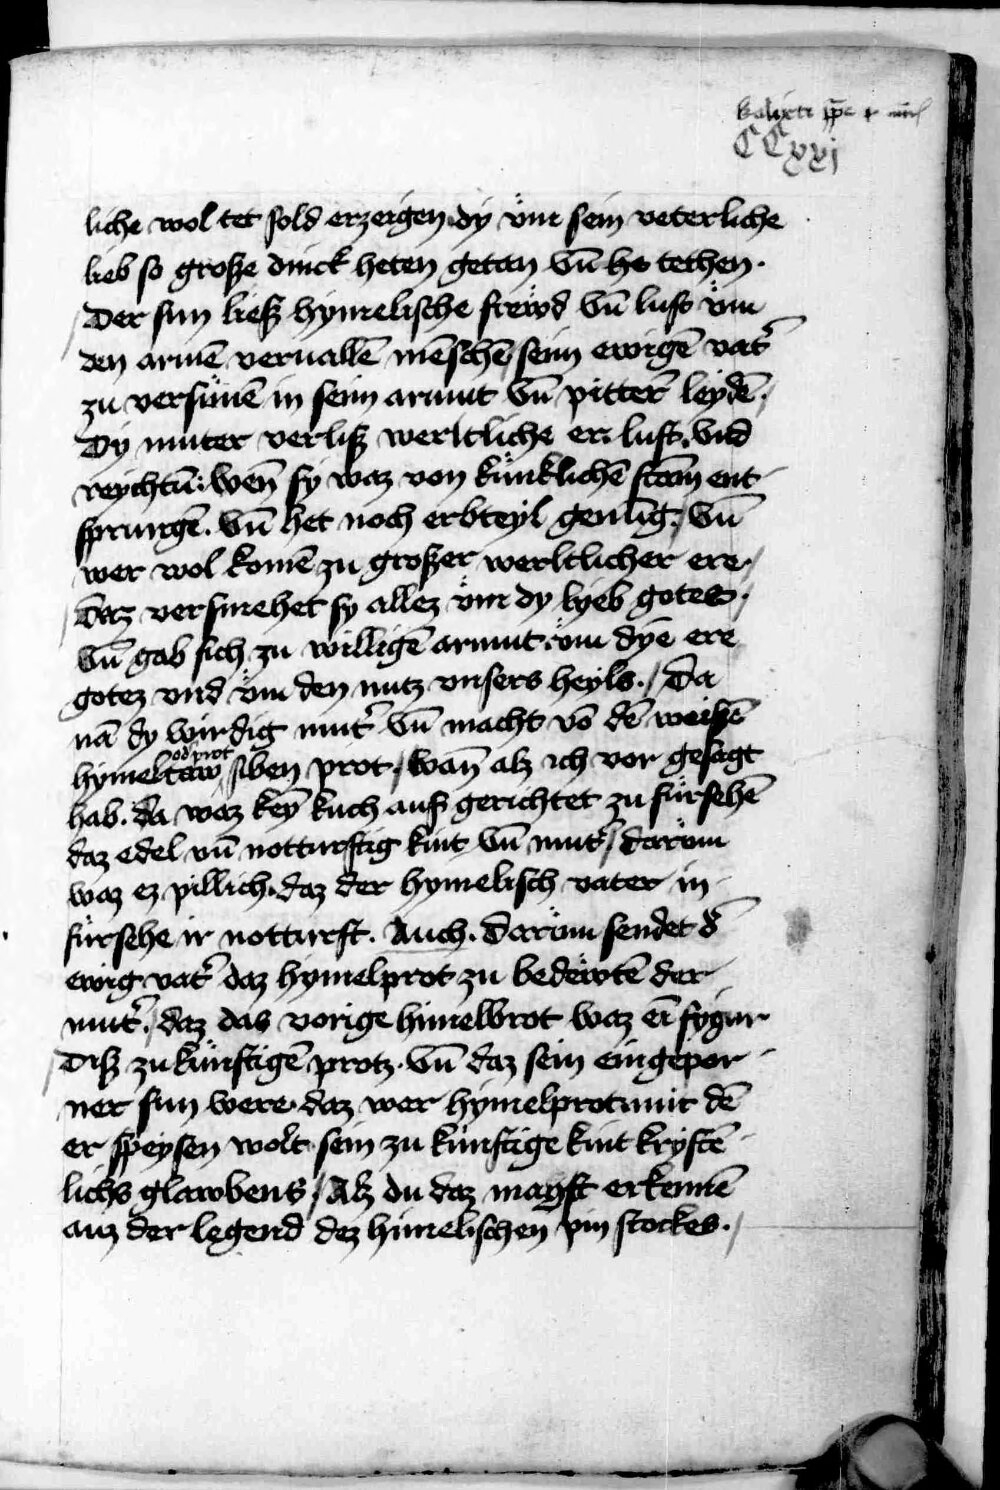 kalixti pp̄e
CCxxj
liche wol tet sold erzeigen dy vm̈ sein veterliche
lieb so große dinck heten getan Vn̄ tethen.
Der sun ließ hymelische frewd Vn̄ lust vm̈
den armē veruallē mēschē seim ewigē vat̾
zu versünē in seim armut Vn̄ pitter leydē.
Dy muter verliß werltliche er. lust. Vnd
reychtū. wen̄ sy waz von künklichē stām ent
sprungē. Vn̄ het noch erbteyl genūg. Vn̄
wer wol komē zu großer werltlicher ere.
Daz versmehet sy allez vm̈ dy lyeb gotes.
Vn̄ gab sich zu willigē armut vm̈ dye ere
gotez vnd vm̈ den nutz vnsers heyls. Da
nā dy wirdig mut̾ Vn̄ macht vō dē weißē
od prot
hymeltaw siben prot. Wan̄ alz ich vor gesagt
hab. da waz key̅ kuch auf gerichtet zu fürsehē
daz edel vn̄ notturftig kint Vn̄ mut̾ darüm
waz ez pillich. daz der hymelisch vater in
fürsehe ir notturft. Auch. Darüm sendet d̾
ewig vat̾ daz hymelprot zu bedewtē der
mut̾. daz das vorige himelbrot waz ei̅ fygur
Diß zukünftigē protz. Vn̄ daz sein eingepor
ner sun were. daz wer hymelprot mit dē
er speysen wolt sein zu künftige kint krystē
lichs glawbens. Alz du daz mayst erkennē
auz der legend dez himelischen pin stockes.